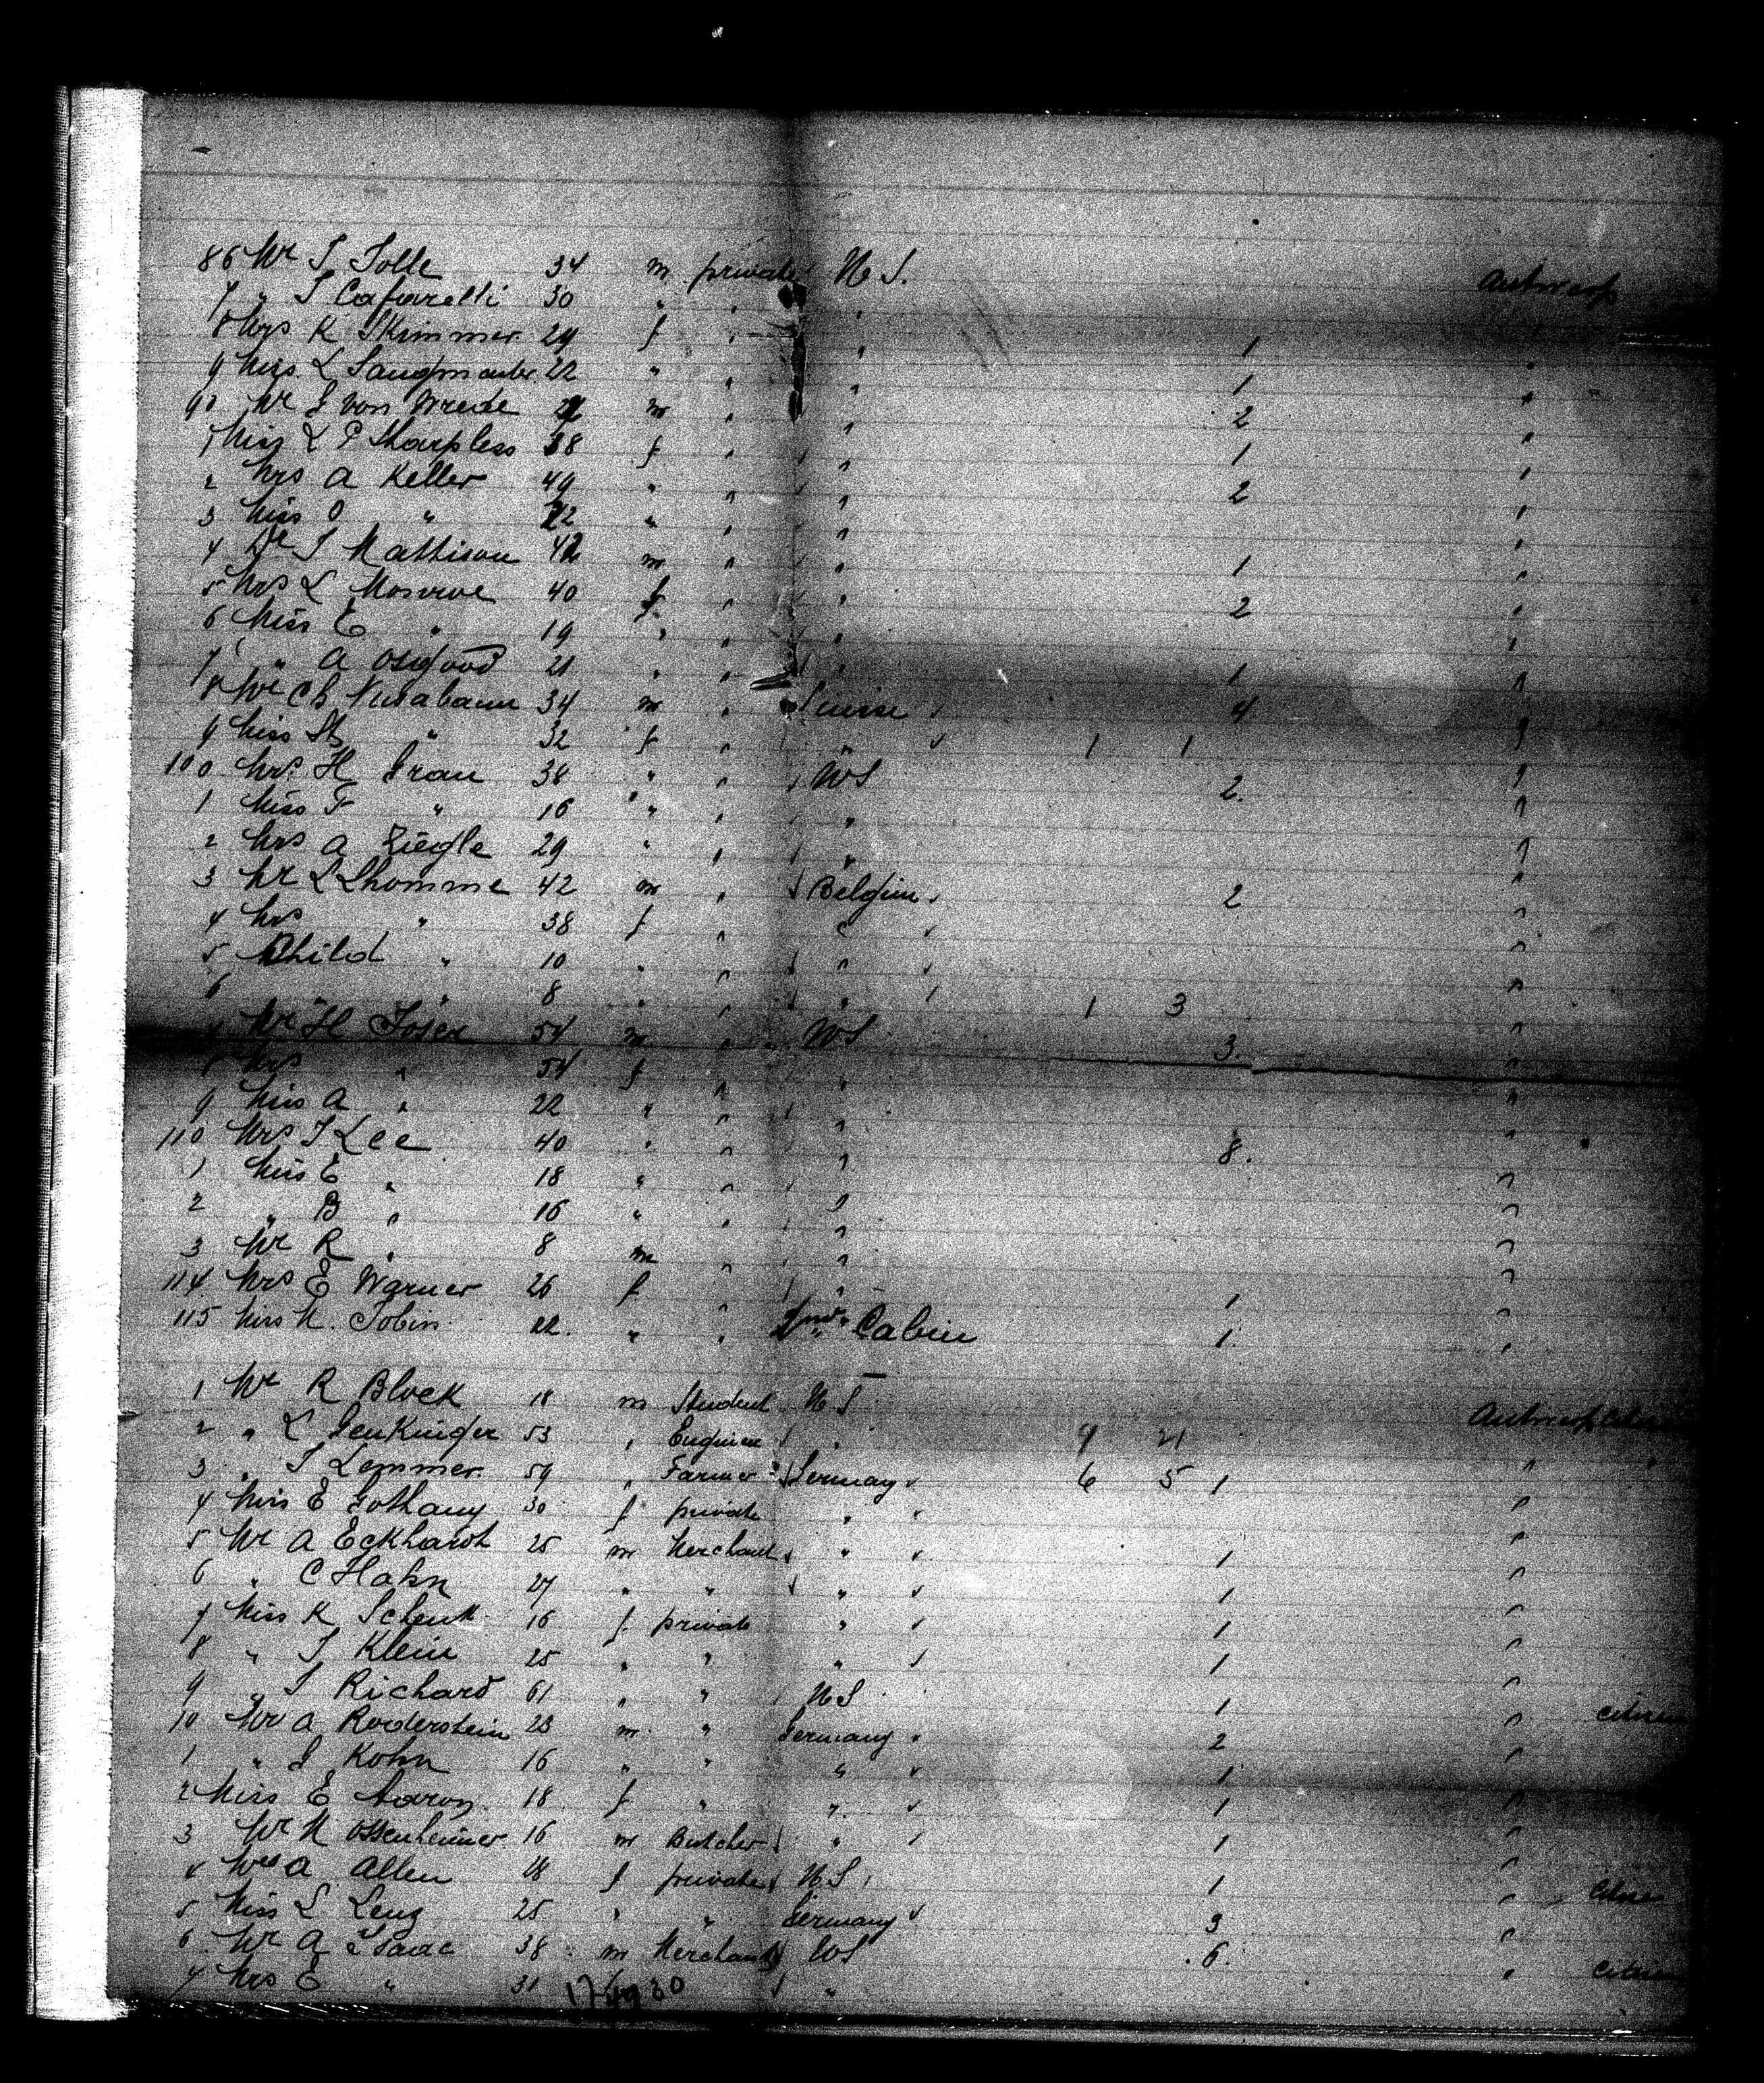 86 Mr J Tolle 34 m private U S. Antwerp
7 " J Cafarelli 30 " " "
8 Mrs K Skimmer 29 f " " 1 "
9 Miss L 22 " " " 1 "
90 Mr J von Wrede m " " 2 "
1 Miss L P Sharpless 38 f " " 1 "
2 Mrs A Keller 49 " " " 2 "
3 Miss O " " " " "
4 Dr J Mattison 42 m " " 1 "
5 Mrs L Monroe 40 f " " 2 "
6 Miss E " 19 " " " "
7 " A Osgood 21 " " " 1 "
8 Mr Ch 34 m " Suisse 4 "
9 Miss " 32 f " " 1 1 "
100 Mrs H Grau 38 " " U S 2. "
1 Miss F " 16 " " " "
2 Mrs A Ziegle 29 " " " "
3 Mr L Lhomme 42 m " Belgium 2 "
4 Mrs " 38 f " " "
5 Child " 10 " " " "
6 " " 8 " " " 1 3 "
7 Mr H Toser 54 m " U S 3. "
8 Mrs " 54 f " " "
9 Miss A " 22 " " " "
110 Mrs J Lee 40 " " " 8. "
1 Miss E " 18 " " " "
2 " B " 16 " " " "
3 Mr R " 8 m " " "
114 Mrs E Warner 26 f " " 1 "
115 Miss M. Tobin 22. " " " 1. "
2nd Cabin
1 Mr R Block 18 m Student U S Antwerp citizen
2 " L Lenkinger 53 " Engineer " 9 21 " "
3 " J Lemmer 59 " Farmer Germany 6 5 1 "
4 Miss E Gothany 30 f private " "
5 Mr A Eckhardt 25 m Merchant " 1 "
6 " C Hahn 27 " " " 1 "
7 Miss K Schenk 16 f. private " 1 "
8 " J Klein 25 " " " 1 "
9 " J Richard 61 " " U S 1 " citizen
10 Mr A Roderstein 23 m " Germany 2 "
1 " J Kohn 16 " " " 1 "
2 Miss E Aaron 18 f " " 1 "
3 Mr M Ossenheimer 16 m Butcher " 1 "
4 A Allen 18 f private U S 1 " citizen
5 Miss L Leng 25 " " Germany 3 "
6 Mr A Isaac 38 m Merchant U S 6. " citizen
7 Mrs E " 31 "